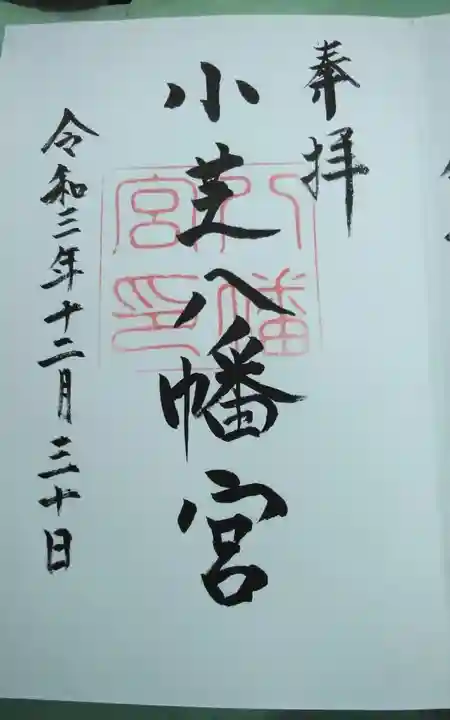 奉拝
小芝八幡宮
八幡
宮印
令和三年十二月三十日